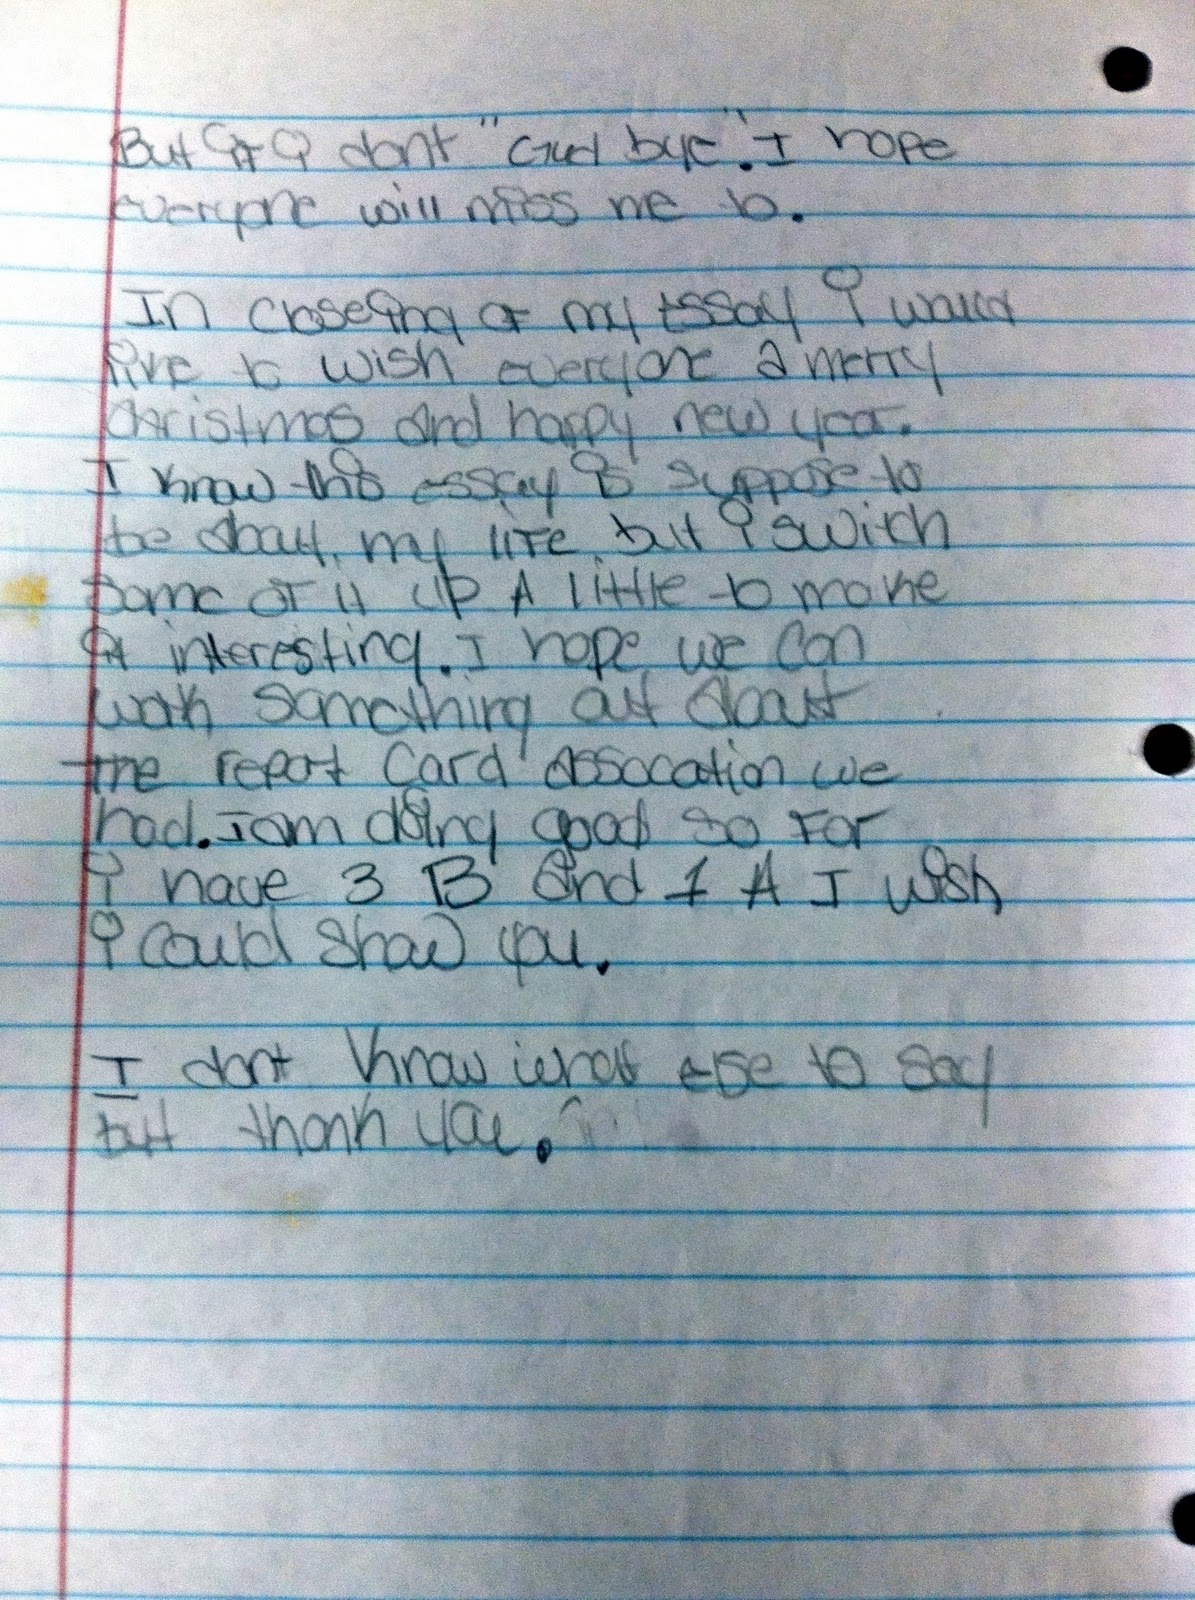 But if i dont "Good bye". I hope
everyone will miss me to.
In closeing of my Essay i would
like to wish everyone a merry
christmas and happy new year.
I know this essay is suppose to
be about my life, but i switch
some of it up A little to make
it interesting. I hope we can
work something out about
the report card assocation we
had. I am doing good so far
i have 3 B and 1 A I wish
i could show you.
I dont know what else to say
but thank you.